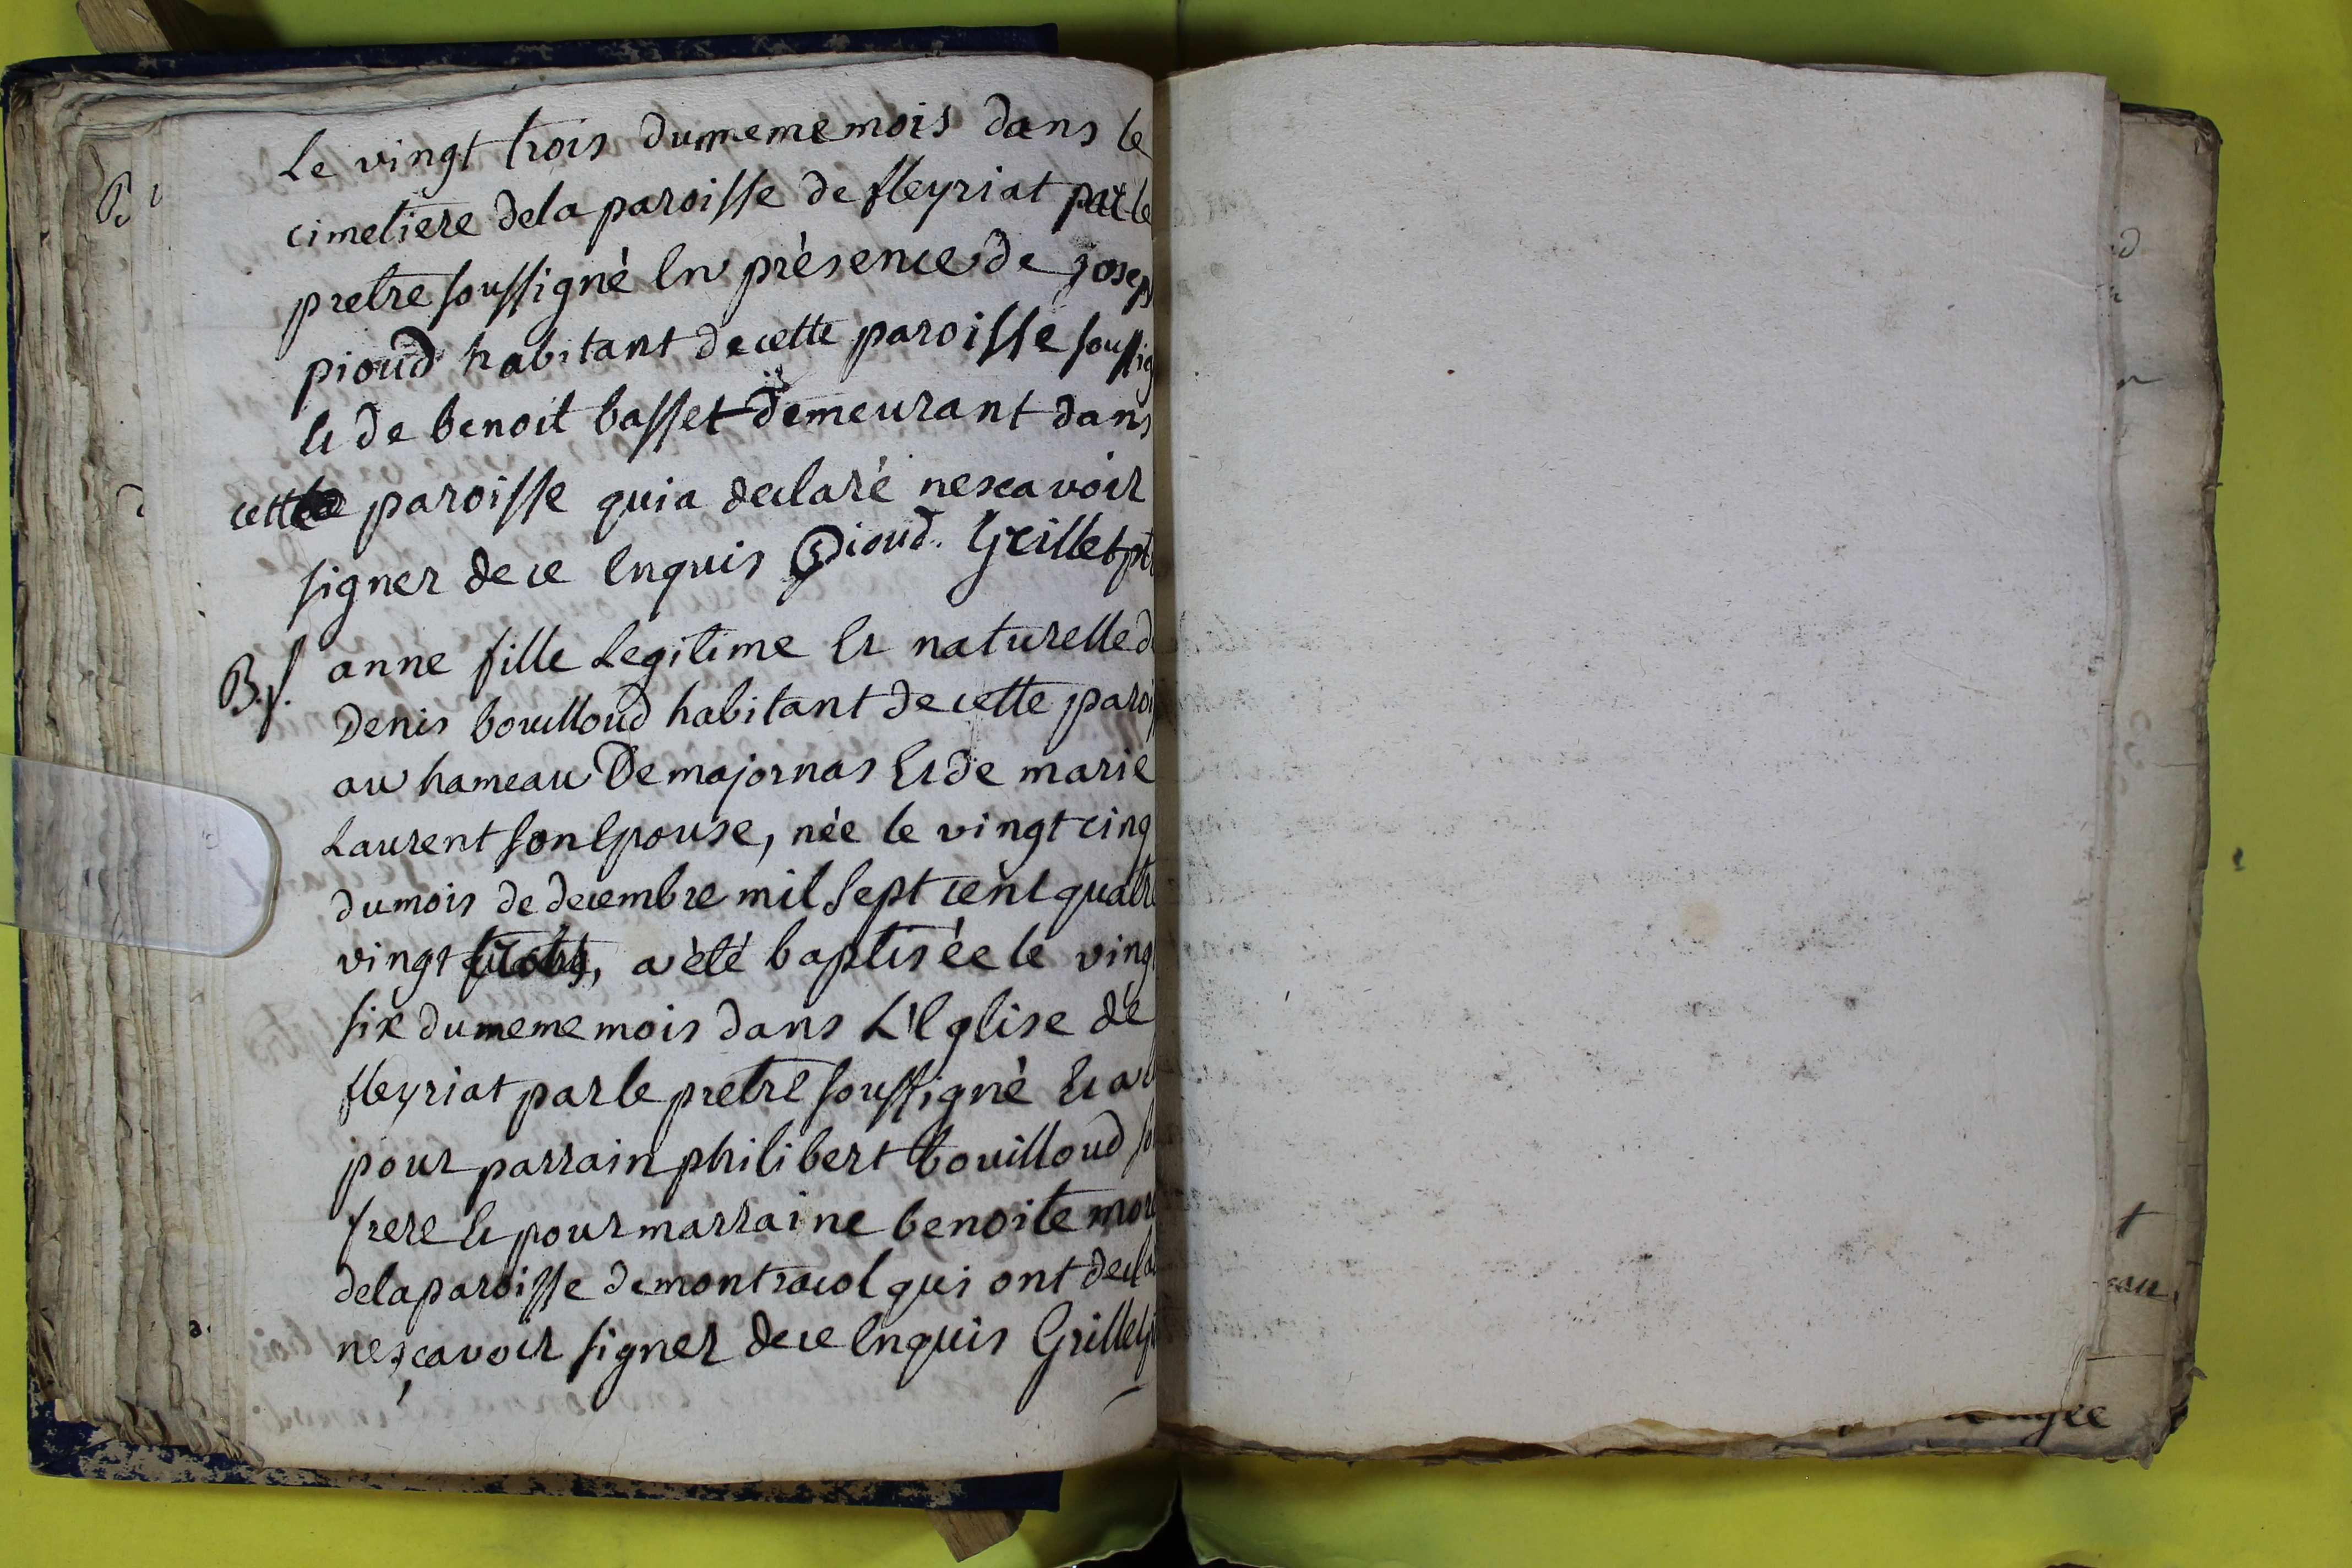 Le vingt trois du meme mois dans le
cimetiere de la paroisse de fleyriat par le
pretre soussigné En présence de josep
pioud habitant de cette paroisse soussig
Et de benoit basset demeurant dans
cette paroisse qui a declaré ne scavoir
signer de ce Enquis Pioud. Grillet ptr
B. f. anne fille Legitime Et naturelle d
Denis bouilloud habitant de cette paroi
au hameau De majornas Et de marie
Laurent son Epouse, née le vingt cinq
du mois de decembre mil sept cent quatre
vingt, a été baptisée le ving
six du meme mois dans L'Eglise de
fleyriat par le pretre soussigné Et a
pour parrain philibert bouilloud so
frere Et pour marraine benoite more
de la paroisse de montracol qui ont decla
ne sçavoir signer de ce Enquis Grillet p